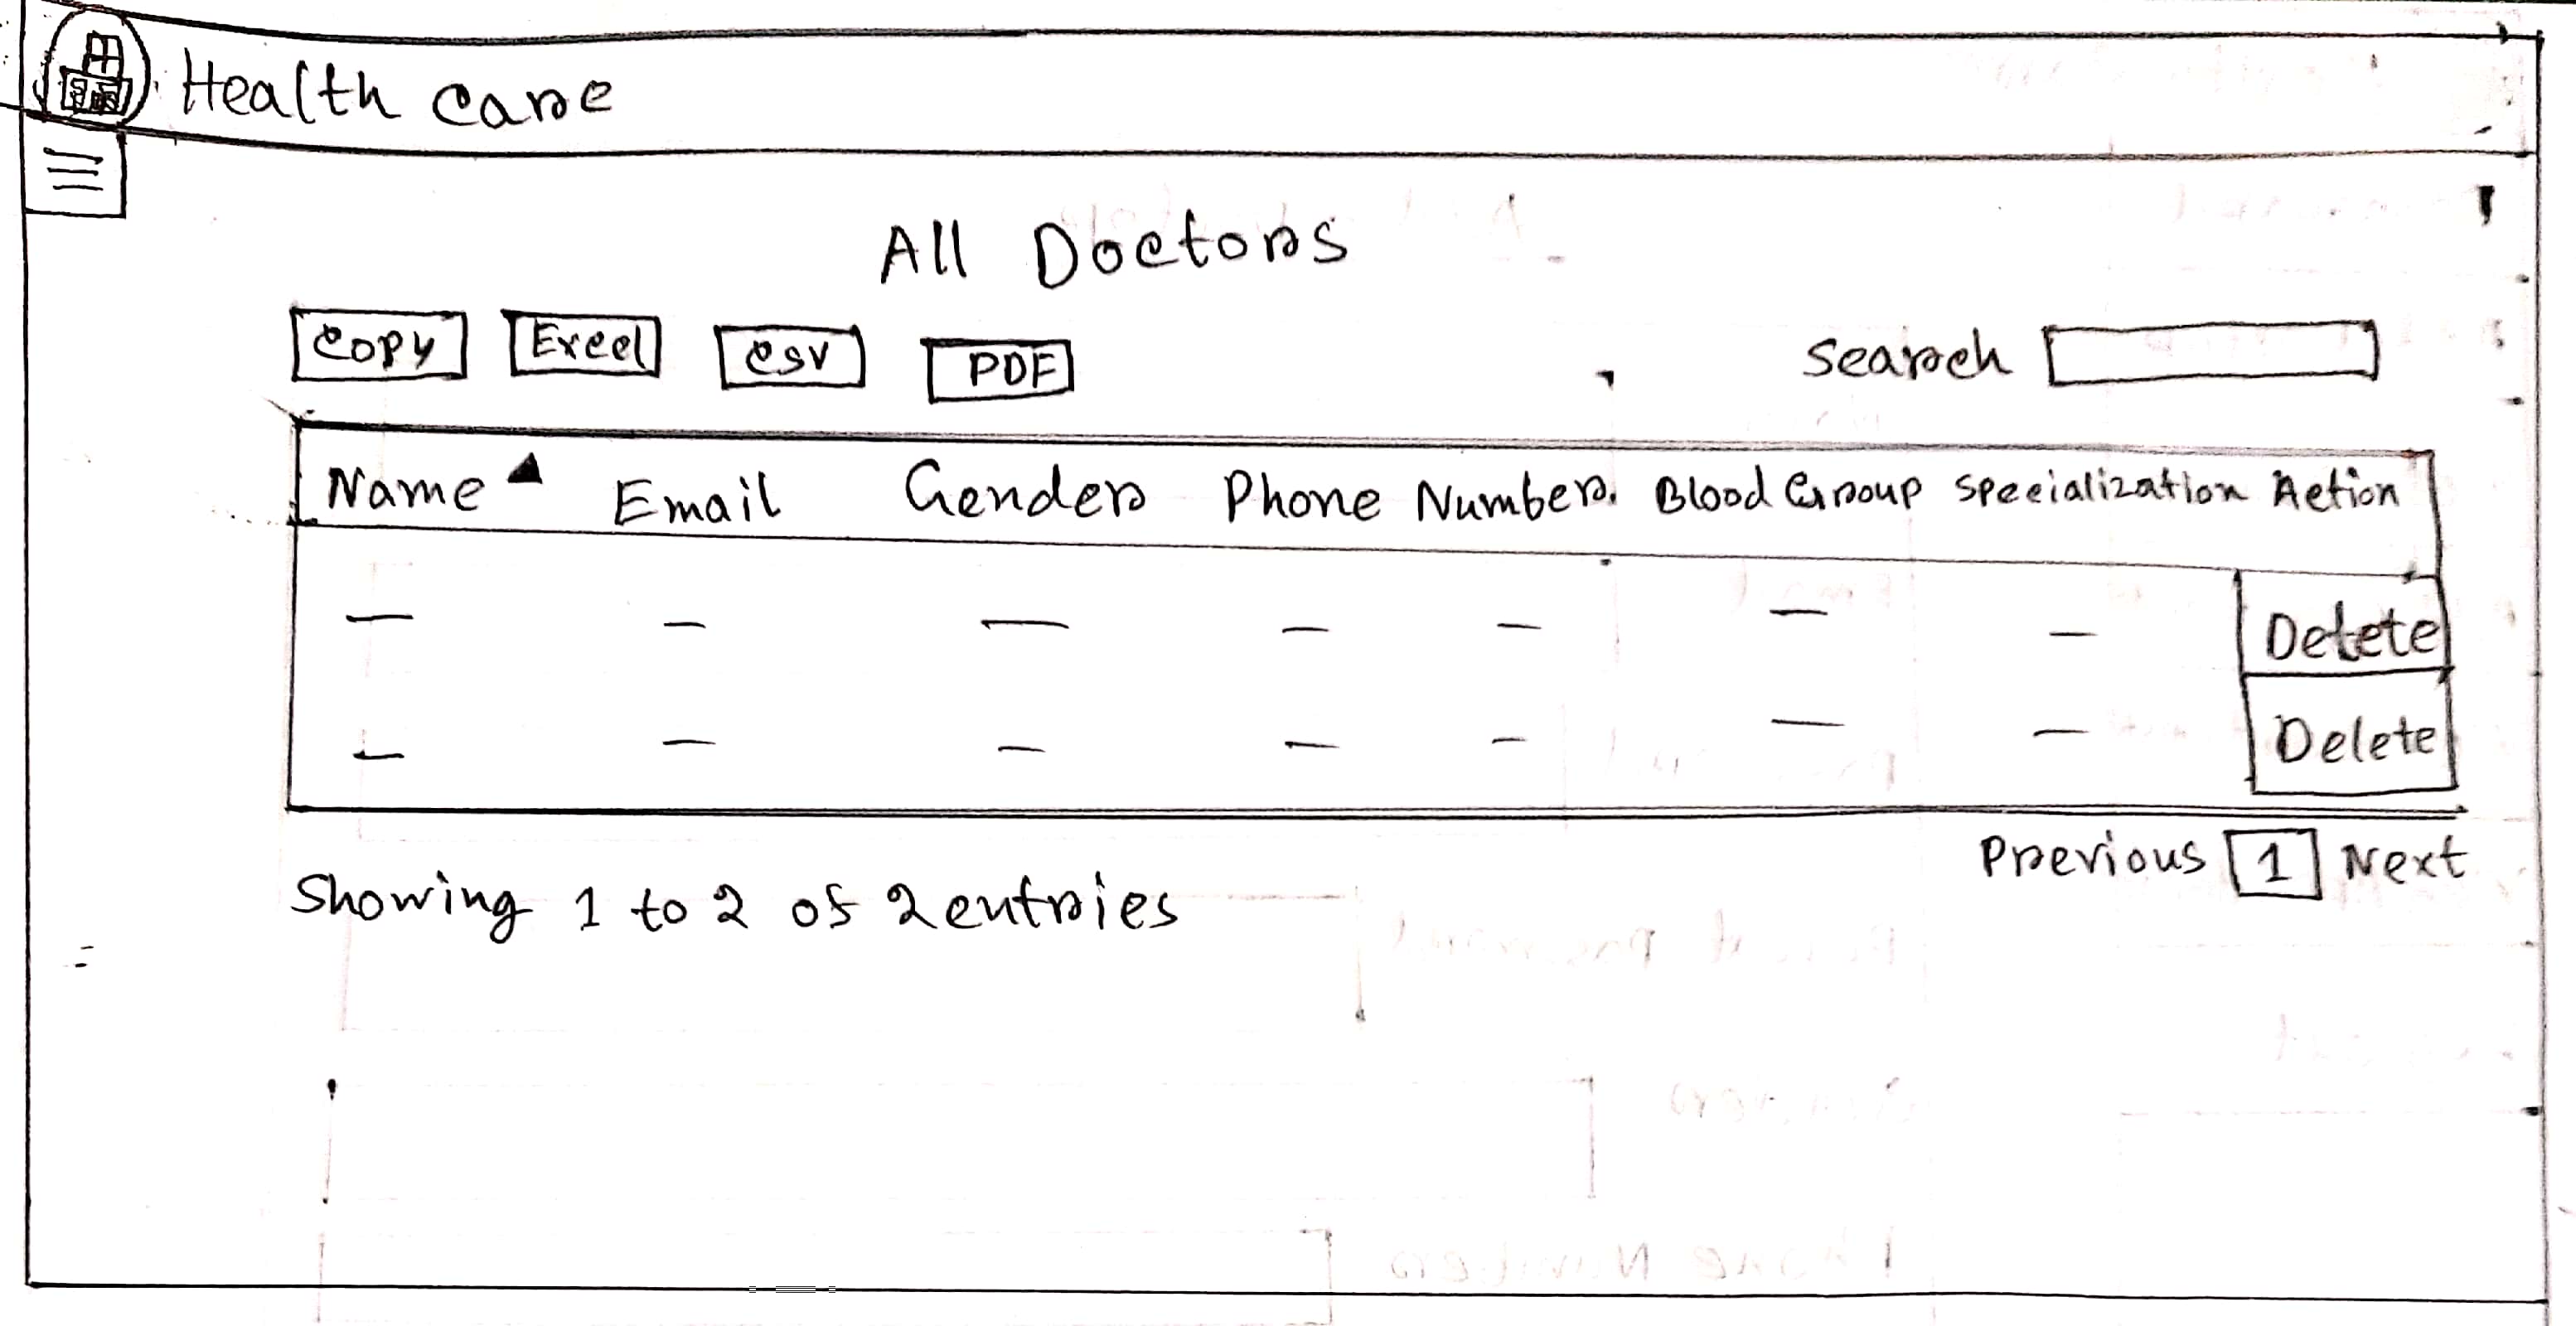 Health care
All Doctors
Copy Excel CSV PDF Search
Name Email Gender Phone Number. Blood Group Specialization Action
Delete
Delete
Previous 1 Next
Showing 1 to 2 of 2 entries